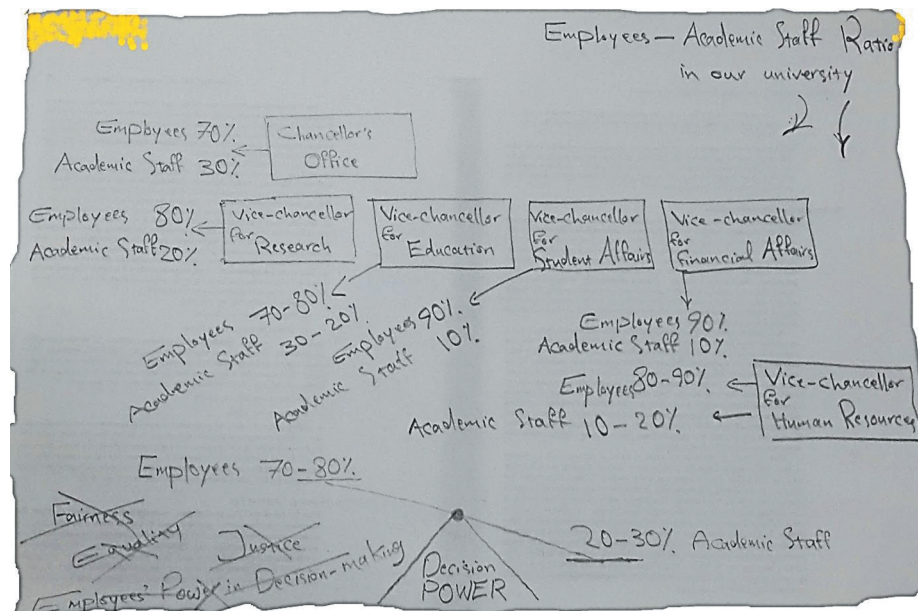 Employees – Academic Staff Ratio
in our university
Employees 70%
Academic Staff 30%
Chancellor's
Office
Employees 80%
Academic Staff 20%
Vice-chancellor
for
Research
Vice-chancellor
for
Education
Vice-chancellor
for
Student Affairs
Vice-chancellor
for
Financial Affairs
Employees 70-80%
Academic Staff 30-20%
Employees 90%
Academic Staff 10%
Employees 90%
Academic Staff 10%
Employees 80-90%
Academic Staff 10-20%
Vice-chancellor
for
Human Resources
Employees 70-80%
Fairness
Equality
Justice
Employees' Power in Decision-making
Decision
POWER
20-30% Academic Staff